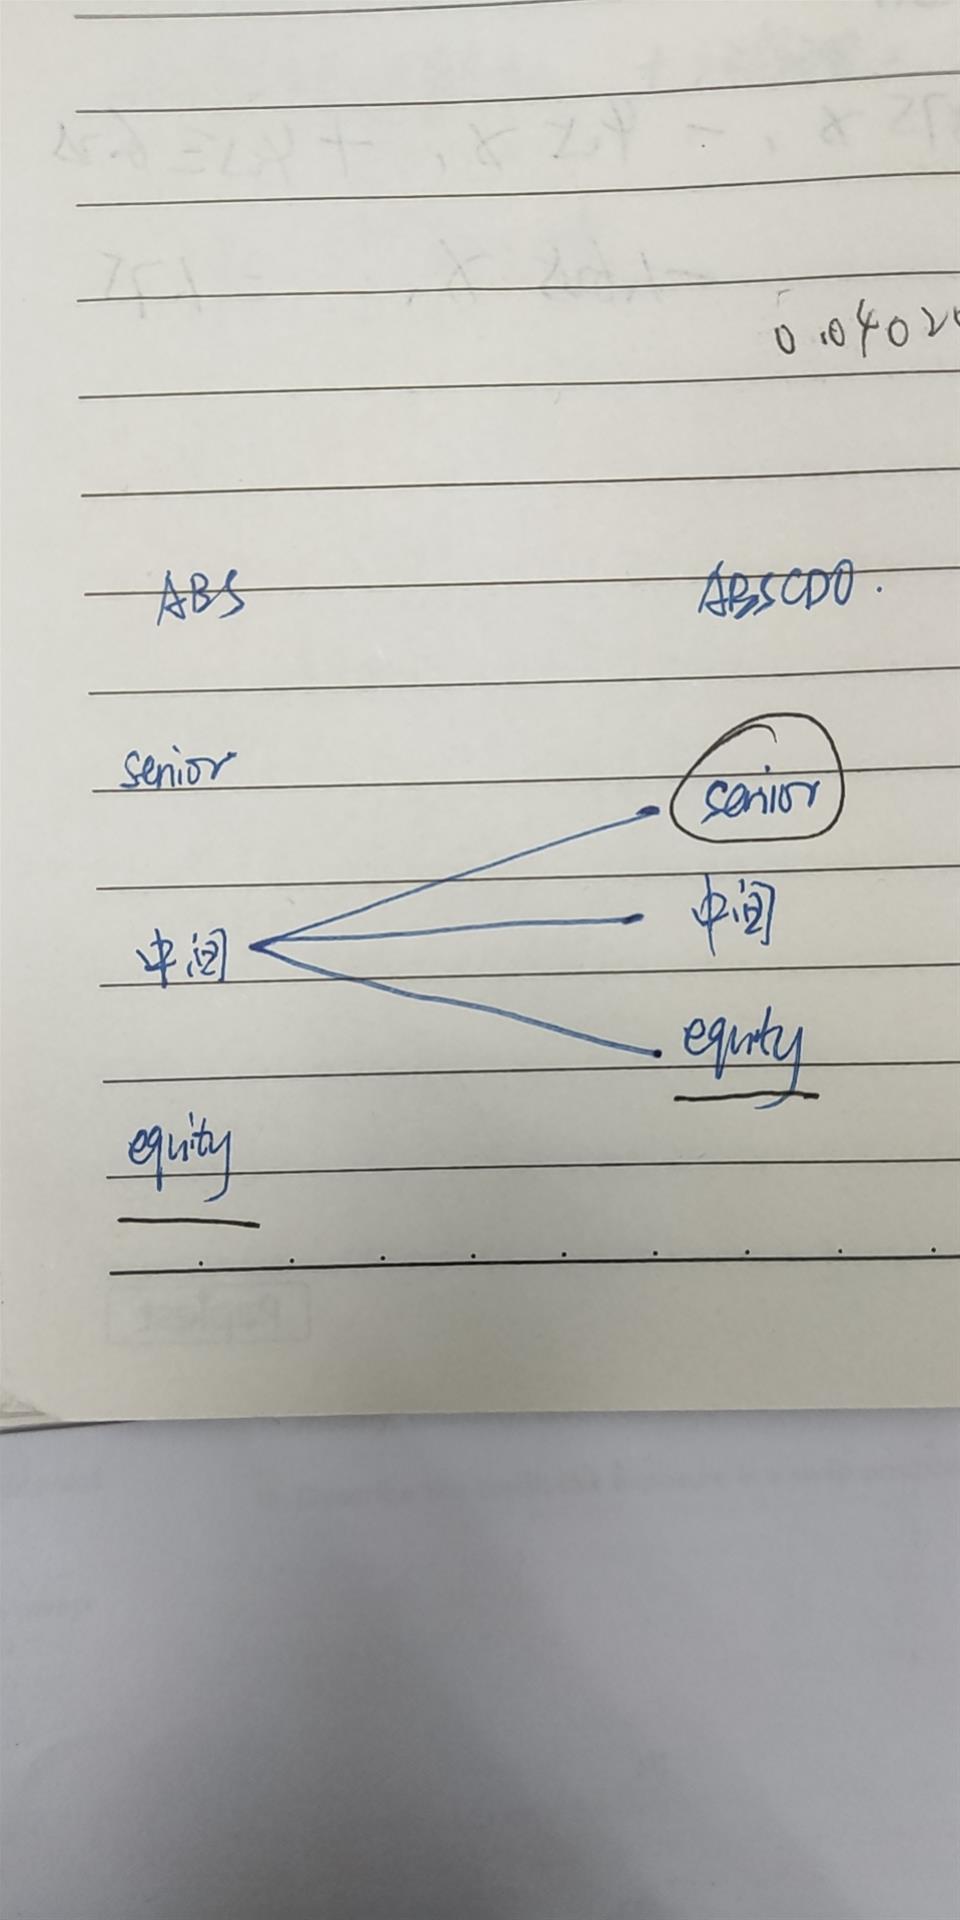 0.0402
ABS ABSCDO.
senior senior
中间 中间
equity
equity